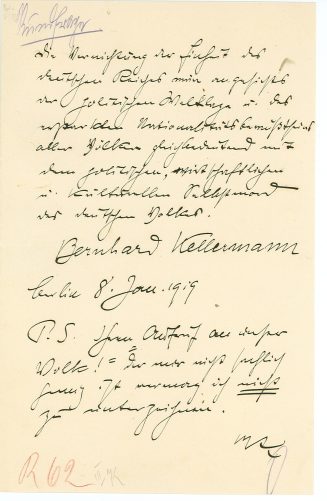 Rundfrage
Die Vernichtung der Einheit des
deutschen Reiches wäre angesichts
der politischen Weltlage u. des
erstarkten Nationalitätsbewußtseins
aller Völker gleichbedeutend mit
dem politischen, wirtschaftlichen
u. kulturellen Selbstmord
des deutschen Volkes.
Bernhard Kellermann
Berlin 8. Jan. 1919
P.S. Ihren Aufruf an unser
Volk! = Der mir nicht sachlich
genug ist vermag ich nicht
zu unterzeichnen.
R 62